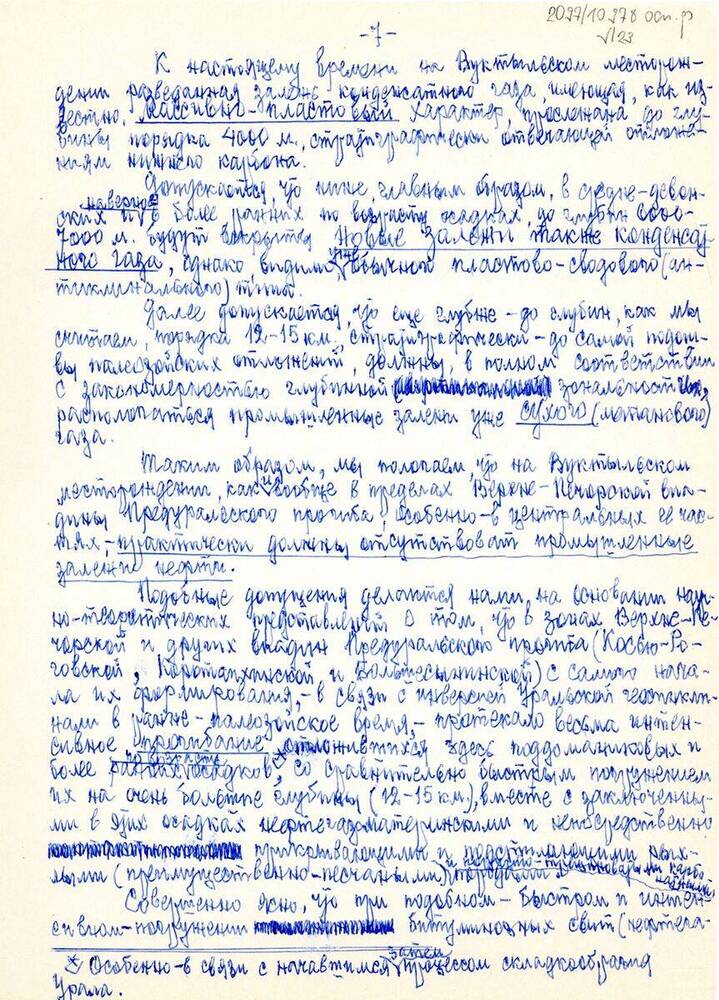 2097/10378 осн.ф
-7-
К настоящему времени на Вуктыльском месторож-
дении разведанная залежь конденсатного газа, имеющая, как из-
вестно, массивно-пластовый характер, прослежана до глу-
бины порядка 4000 м., стратиграфически отвечающей отложе-
ниям нижнего карбона.
Допускается, что ниже, главным образом, в средне-девон-
наверное
ских и в более ранних по возрасту осадках, до глубин 6000-
7000 м. будут вскрыты новые залежи также конденсат-
ного газа, однако, видимо, обычного пластово-сводового (ан-
тиклинального) типа.
Далее допускается, что еще глубже - до глубин, как мы
считаем, порядка 12-15 км., стратиграфически - до самой подош-
вы палеозойских отложений, должны, в полном соответствии
с закономерностью глубинной зональности их,
располагаться промышленные залежи уже сухого (метанового)
газа.
Таким образом, мы полагаем, что на Вуктыльском
месторождении, как и вообще в пределах Верхне-Печорской впа-
дины Предуральского прогиба, особенно - в центральных ее час-
тях, - практически должны отсутствовать промышленные
залежи нефти.
Подобные допущения делаются нами, на основании науч-
но-теоретических представлений о том, что в зонах Верхне-Пе-
чорской и других впадин Предуральского прогиба (Косью-Ро-
говской, Коротаихинской, и Большесынинской) с самого нача-
ла их формирования, - в связи с инверсией Уральской геосинкли-
нали в ранне-палеозойское время, - протекало весьма интен-
сивное прогибание отложившихся здесь поддоманиковых и
по возрасту
более ранних осадков, со сравнительно быстрым погружением
их на очень большие глубины (12-15 км), вместе с заключенны-
ми в этих осадках нефтегазоматеринскими и непосредственно
прикрывающими и подстилающими рых-
лыми (преимущественно-песчаными) породами
Совершенно ясно, что при подобном - быстром и интен-
сивном - погружении битуминозных свит (нефтега-
затем
* Особенно - в связи с начавшимся процессом складкообр-ния
Урала.